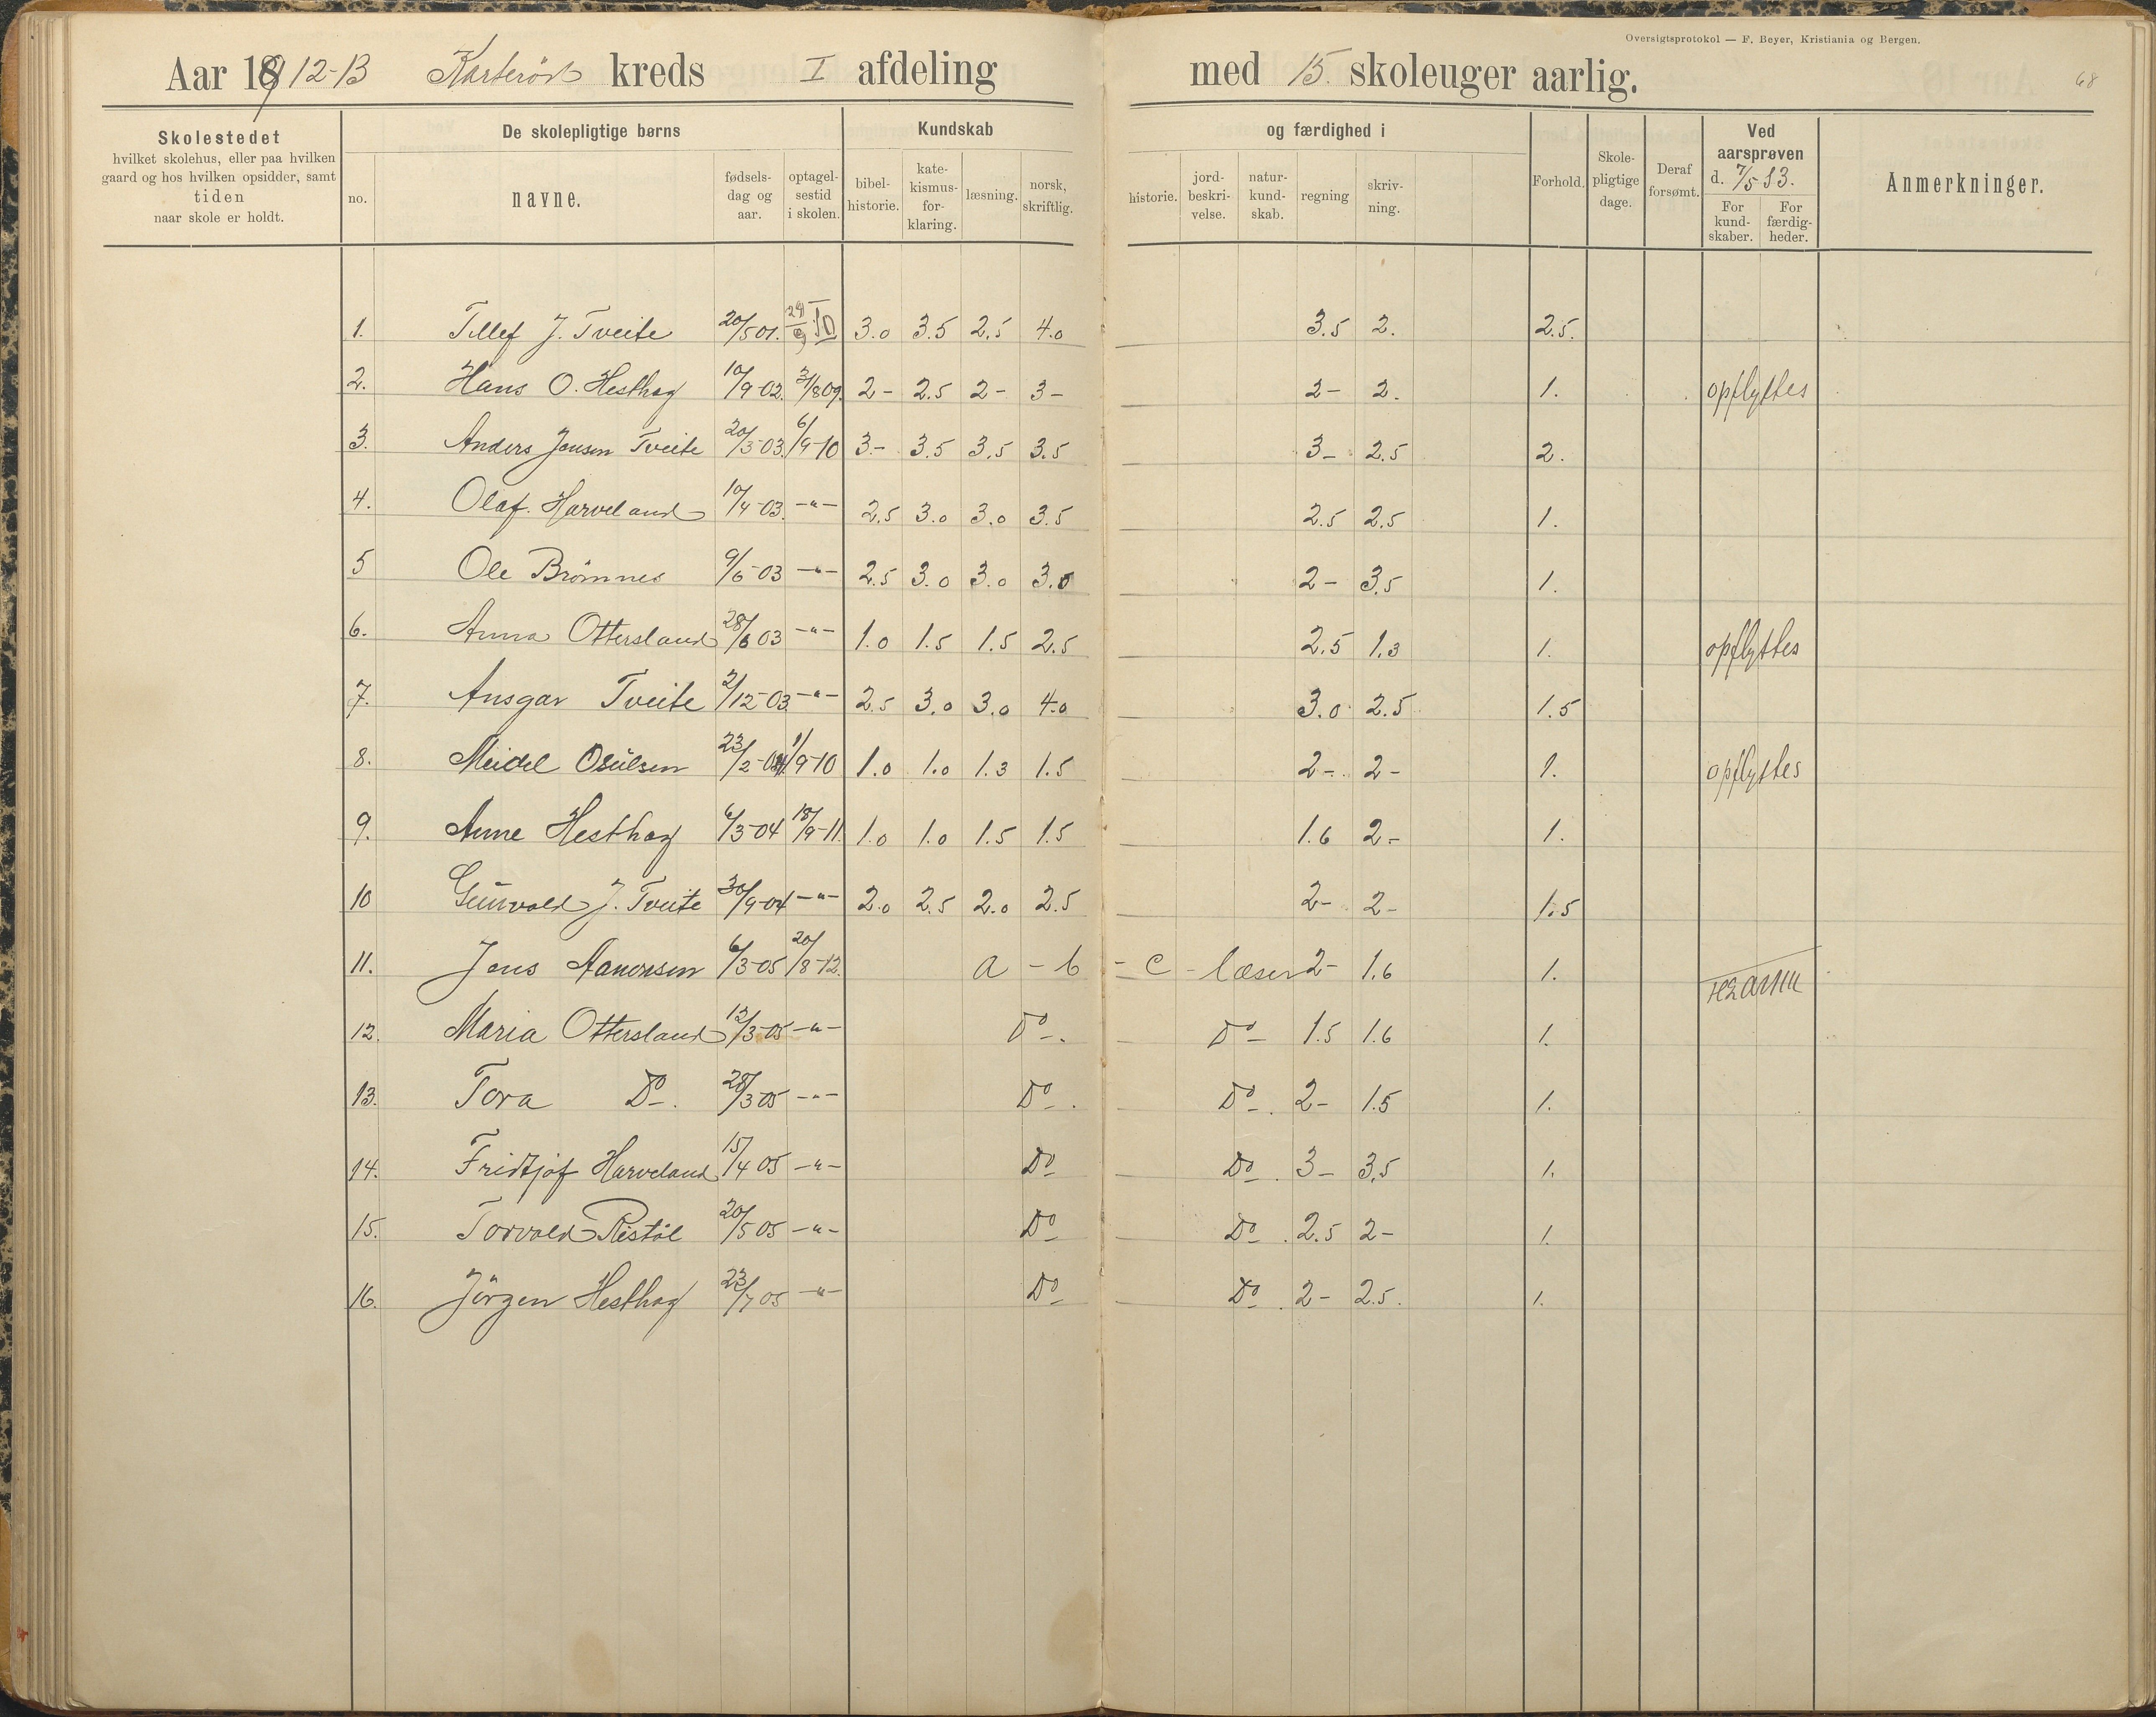 Oversigtsprotokol — F. Beyer, Kristiania og Bergen.
Aar 1912-13 Karterød kreds I afdeling med 15. skoleuger aarlig. 68
Skolestedet
hvilket skolehus, eller paa hvilken
gaard og hos hvilken opsidder, samt
tiden
naar skole er holdt.
De skolepligtige børns
no.
navne.
fødsels-
dag og
aar.
optagel-
sestid
i skolen.
Kundskab
bibel-
historie.
kate-
kismus-
for-
klaring.
læsning.
norsk,
skriftlig.
og færdighed i
historie.
jord-
beskri-
velse.
natur-
kund-
skab.
regning
skriv-
ning.
Forhold.
Skole-
pligtige
dage.
Deraf
forsømt.
Ved
aarsprøven
d. 7/5 13.
For
kund-
skaber.
For
færdig-
heder.
Anmerkninger.
1. Tellef J. Tveite 20/5 01. 3.0 3.5 2.5 4.0 3.5 2. 2.5.
2. Hans O. Hesthag 10/9-02. 3/8 09. 2- 2.5 2- 3- 2- 2. 1. opflyttes
3. Anders Jensen Tveite 20/3-03. 6/9-10 3.- 3.5 3.5 3.5 3- 2.5 2.
4. Olaf. Harveland 10/4-03. -"- 2.5 3.0 3.0 3.5 2.5 2.5 1.
5 Ole Brömnes 9/6-03 -"- 2.5 3.0 3.0 3.0 2- 3.5 1.
6. Anna Ottersland 28/6 03 -"- 1.0 1.5 1.5 2.5 2.5 1.3 1. opflyttes
7. Ansgar Tveite 2/12-03 -"- 2.5 3.0 3.0 4.0 3.0 2.5 1.5
8. Meidel Osülsen 23/2-04 1/9-10 1.0 1.0 1.3 1.5 2- 2- 1. opflyttes
9. Anne Hesthag 6/3-04 18/9-11. 1.0 1.0 1.5 1.5 1.6 2- 1.
10 Günvald J. Tveite 30/9-04 -"- 2.0 2.5 2.0 2.5 2- 2- 1.5
11. Jens Aanensen 6/3-05 20/8-12. a - b - c - læser 2- 1.6 1.
12. Maria Ottersland 12/3-05 -"- Do. Do 1.5 1.6 1.
13. Tora Do. 28/3 05 -"- Do. Do. 2- 1.5 1.
14. Fridtjof Harveland 15/4 05 -"- Do Do. 3- 3.5 1.
15. Torvald Ristöl 20/5 05 -"- Do Do. 2.5 2- 1.
16. Jörgen Hesthag 23/7 05 -"- Do Do. 2- 2.5. 1.